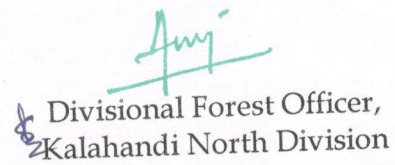 Divisional Forest Officer,
Kalahandi North Division